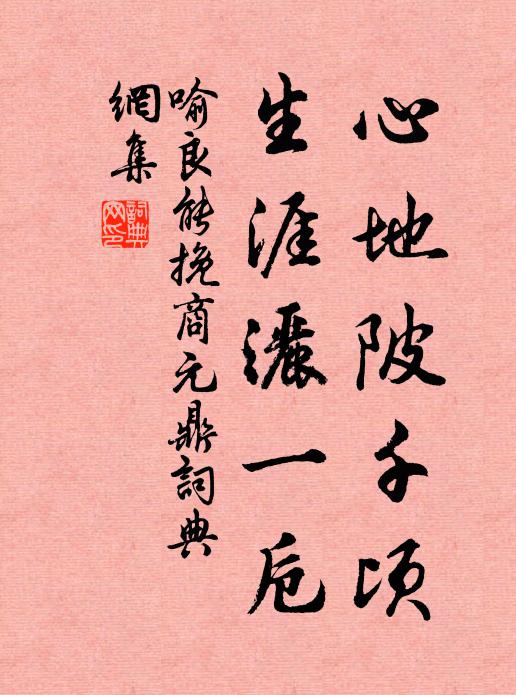 心地陂千頃
生涯灑一卮
喻良能挽商元鼎詞典
網集
詞典網印